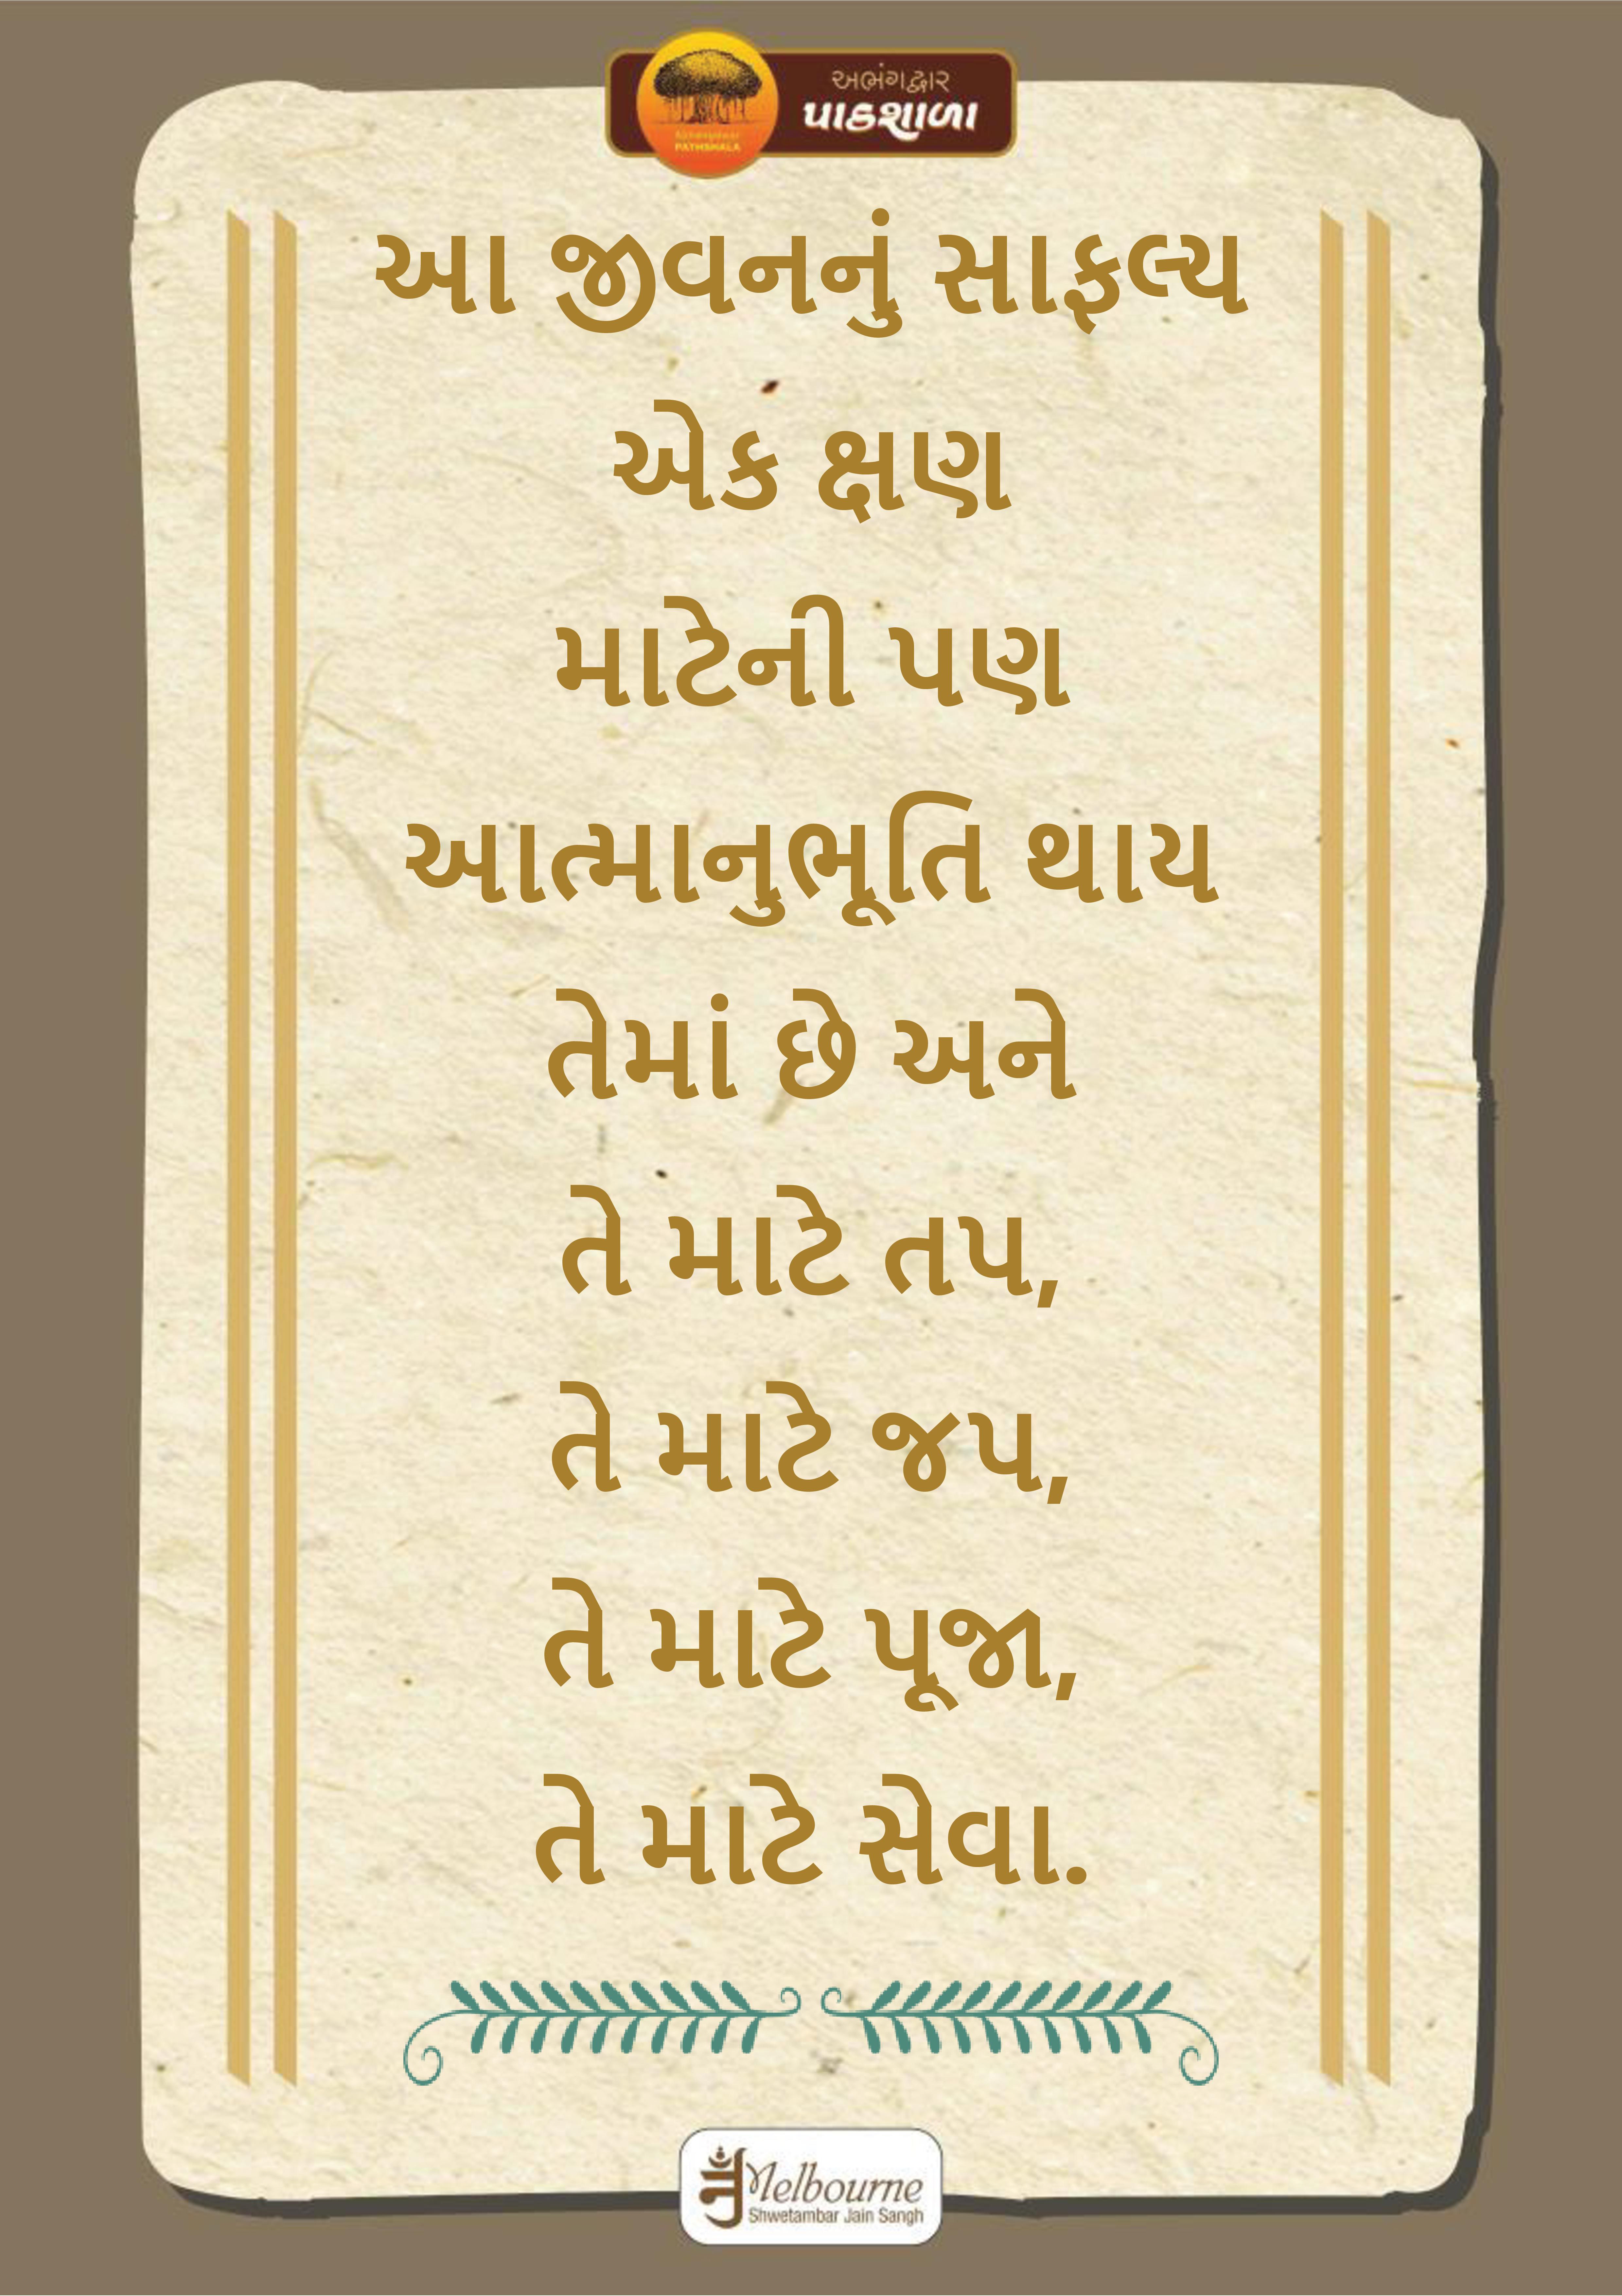 અભંગદ્વાર
પાઠશાળા
PATHSHALA
આ જીવનનું સાફલ્ય
એક ક્ષણ
માટેની પણ
આત્માનુભૂતિ થાય
તેમાં છે અને
તે માટે તપ,
તે માટે જપ,
તે માટે પૂજા,
તે માટે સેવા.
Melbourne
Shwetambar Jain Sangh